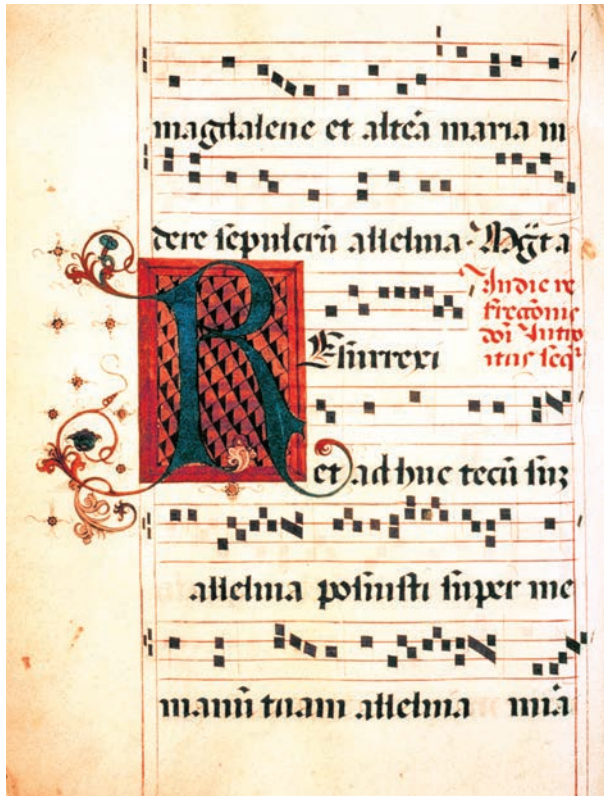 magdalene et altea maria ui
dere sepulcrū alleluia. Mḡt a
In die re
surrectōnis
dn̄i Intro
itus seq̄
REsurrexi
et ad huc tecū suz
alleluia posuisti super me
manū tuam alleluia mīa